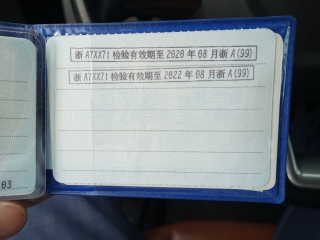 浙A7XX71检验有效期至2020年08月浙A(99)
浙A7XX71检验有效期至2022年08月浙A(99)
03